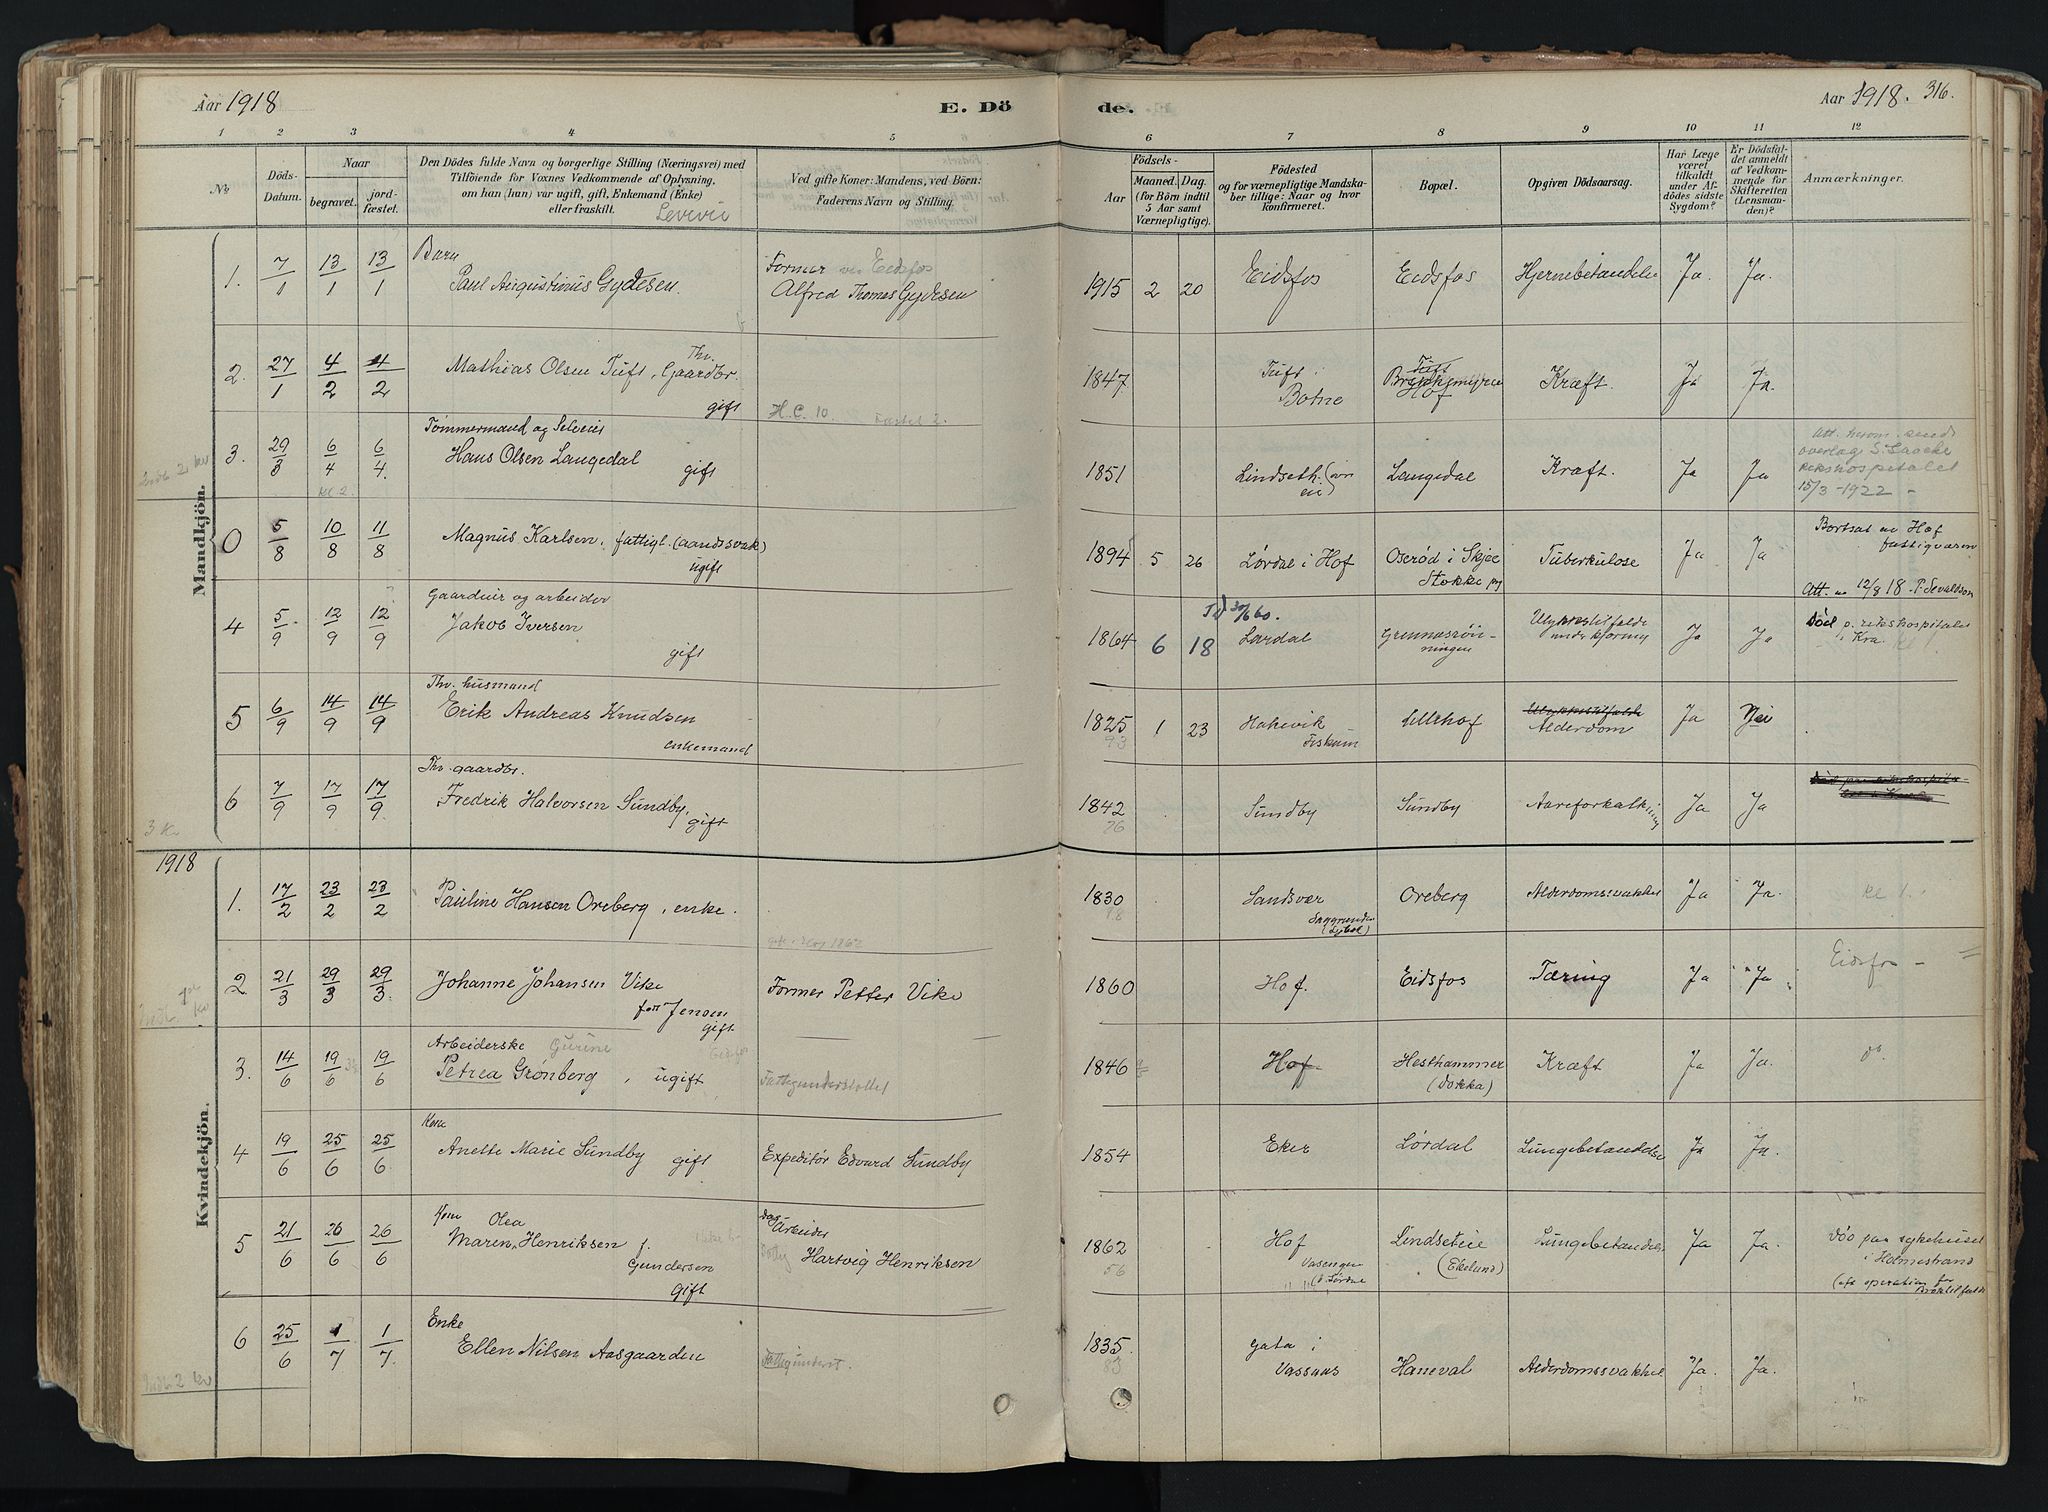 Aar 1918
E. Dö
de.
Aar 1918. 316.
1 2 3 4 5 6 7 8 9 10 11 12
No
Döds-
Datum.
Naar
begravet.
jord-
fæstet.
Den Dödes fulde Navn og borgerlige Stilling (Næringsvei) med
Tilföiende for Voxnes Vedkommende af Oplysning,
om han (hun) var ugift, gift, Enkemand (Enke)
eller fraskilt.
Ved gifte Koner: Mandens, ved Börn:
Faderens Navn og Stilling.
Födsels-
Aar
Maaned. Dag.
(for Börn indtil
5 Aar samt
Værnepligtige).
Födested
og for værnepligtige Mandska-
ber tillige: Naar og hvor
konfirmeret.
Bopæl.
Opgiven Dödsaarsag.
Har Læge
været
tilkaldt
under Af-
dödes sidste
Sygdom?
Er Dödsfal-
det anmeldt
af Vedkom-
mende for
Skifteretten
(Lensman-
den)?
Anmærkninger.
Mandkjön.
1. 7/1 13/1 13/1 Barn
Paul Augustinus Gydesen.
Former ved Eidsfos
Alfred Thomas Gydesen
1915 2 20 Eidsfos Eidsfos Hjernebetændelse Ja. Ja.
2. 27/1 4/2 4/2 Mathias Olsen Tuft, Thv. Gaardbr.
gift
H.C. 10
1847. Tuft i
Botne
Tuft
Hof
Kræft. Ja Ja.
3. 29/3 6/4 6/4. Tømmermand og Selveier
Hans Olsen Langedal
gift
1851 Langedal Kræft. Ja Ja
15/3-1922 -
0 5/8 10/8 11/8 Magnus Karlsen, fattigl. (aandssvak)
ugift
1894 5 26 Lørdal i Hof Oserød i Skjee
Stokke
Tuberkulose Ja Ja
Bortsat av Hof
fattigvæsen
Att. 12/8 18. P. Sevaldson
4 5/9 12/9 12/9 Gaardeier og arbeider
Jakob Iversen
gift
1864 6 18 Lardal
Ulykkestilfælde
under kjøring
Ja Ja
Död p. rikshospitalet
i Kra.
5 6/9 14/9 14/9 Thv. husmand
Erik Andreas Knudsen
enkemand
1825 1 23
93
Hakavik
Fiskum
Lillehof
Ulykkestilfælde
Alderdom
Ja Nei
6 7/9 17/9 17/9 Thv. gaardbr.
Fredrik Halvorsen Sundby,
gift
1842
76
Sundby Sundby Aareforkalkning Ja Ja
3 Kr
1918
Kvindekjön.
1. 17/2 23/2 23/2 Pauline Hansen Oreberg, enke.
1830 Sandsvær Oreberg Alderdomssvakhet Ja Ja.
2 21/3 29/3 29/3. Johanne Johansen Vike
gift
Former Petter Vike
1860 Hof. Eidsfos Tæring Ja Ja
3. 14/6 19/6 19/6 Arbeiderske Gurine
Petrea Grønberg, ugift
Fattigunderstøttet
1846 Hof Hesthammer
(Dokka)
Kræft Ja Ja.
4 19/6 25/6 25/6 Kone
Anette Marie Sundby gift
Expeditør Edvard Sundby
1854 Eker Lørdal Lungebetændelse Ja Ja.
5 21/6 26/6 26/6 Kone Olea
Maren Henriksen f.
Gundersen
gift
Dag
Arbeider
Hartvig Henriksen
1862
56
Hof
Vasengen
Lindseteie
(Ekelund)
Lungebetændelse Ja Ja.
Död paa sykehuset
i Holmestrand
(eft operation for
Broktilfælde
6 25/6 1/7 1/7. Enke
Ellen Nilsen Aasgaarden
Fattigunderst.
1835.
83
Gata i
Vassaas
Haneval Alderdomssvakhet Ja. Ja.